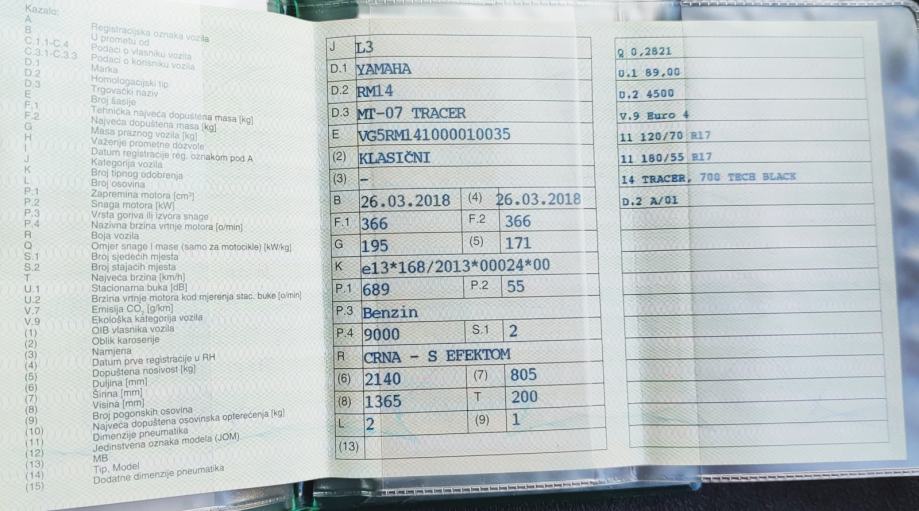 Kazalo:
A Registracijska oznaka vozila
B U prometu od
C.1.1-C.4 Podaci o vlasniku vozila
C.3.1-C.3.3 Podaci o korisniku vozila
D.1 Marka
D.2 Homologacijski tip
D.3 Trgovački naziv
E Broj šasije
F.1 Tehnička najveća dopuštena masa [kg]
F.2 Najveća dopuštena masa [kg]
G Masa praznog vozila [kg]
H Važenje prometne dozvole
I Datum registracije reg. oznakom pod A
J Kategorija vozila
K Broj tipnog odobrenja
L Broj osovina
P.1 Zapremina motora [cm³]
P.2 Snaga motora [kW]
P.3 Vrsta goriva ili izvora snage
P.4 Nazivna brzina vrtnje motora [o/min]
R Boja vozila
Q Omjer snage i mase (samo za motocikle) [kW/kg]
S.1 Broj sjedećih mjesta
S.2 Broj stajaćih mjesta
T Najveća brzina [km/h]
U.1 Stacionarna buka [dB]
U.2 Brzina vrtnje motora kod mjerenja stac. buke [o/min]
V.7 Emisija CO₂ [g/km]
V.9 Ekološka kategorija vozila
(1) OIB vlasnika vozila
(2) Oblik karoserije
(3) Namjena
(4) Datum prve registracije u RH
(5) Dopuštena nosivost [kg]
(6) Duljina [mm]
(7) Širina [mm]
(8) Visina [mm]
(9) Broj pogonskih osovina
(10) Najveća dopuštena osovinska opterećenja [kg]
(11) Dimenzije pneumatika
(12) Jedinstvena oznaka modela (JOM)
(13) MB
(14) Tip, Model
(15) Dodatne dimenzije pneumatika
J L3
D.1 YAMAHA
D.2 RM14
D.3 MT-07 TRACER
E VG5RM141000010035
(2) KLASIČNI
(3) -
B 26.03.2018 (4) 26.03.2018
F.1 366 F.2 366
G 195 (5) 171
K e13*168/2013*00024*00
P.1 689 P.2 55
P.3 Benzin
P.4 9000 S.1 2
R CRNA - S EFEKTOM
(6) 2140 (7) 805
(8) 1365 T 200
L 2 (9) 1
(13)
Q 0,2821
U.1 89,00
U.2 4500
V.9 Euro 4
11 120/70 R17
11 180/55 R17
14 TRACER, 700 TECH BLACK
D.2 A/01